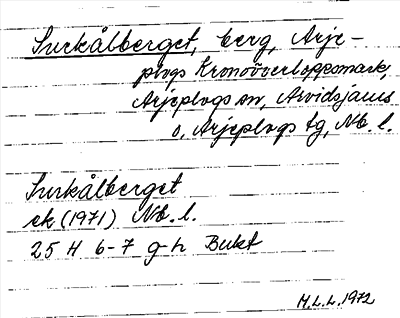 Surkålberget, berg, Arje-
plogs Kronoöverloppsmark,
Arjeplogs sn, Arvidsjaurs
o, Arjeplogs tg, Nb. l.
Surkålberget
ek (1971) Nb. l.
25 H 6-7 g-h Bukt
M.L.L. 1972